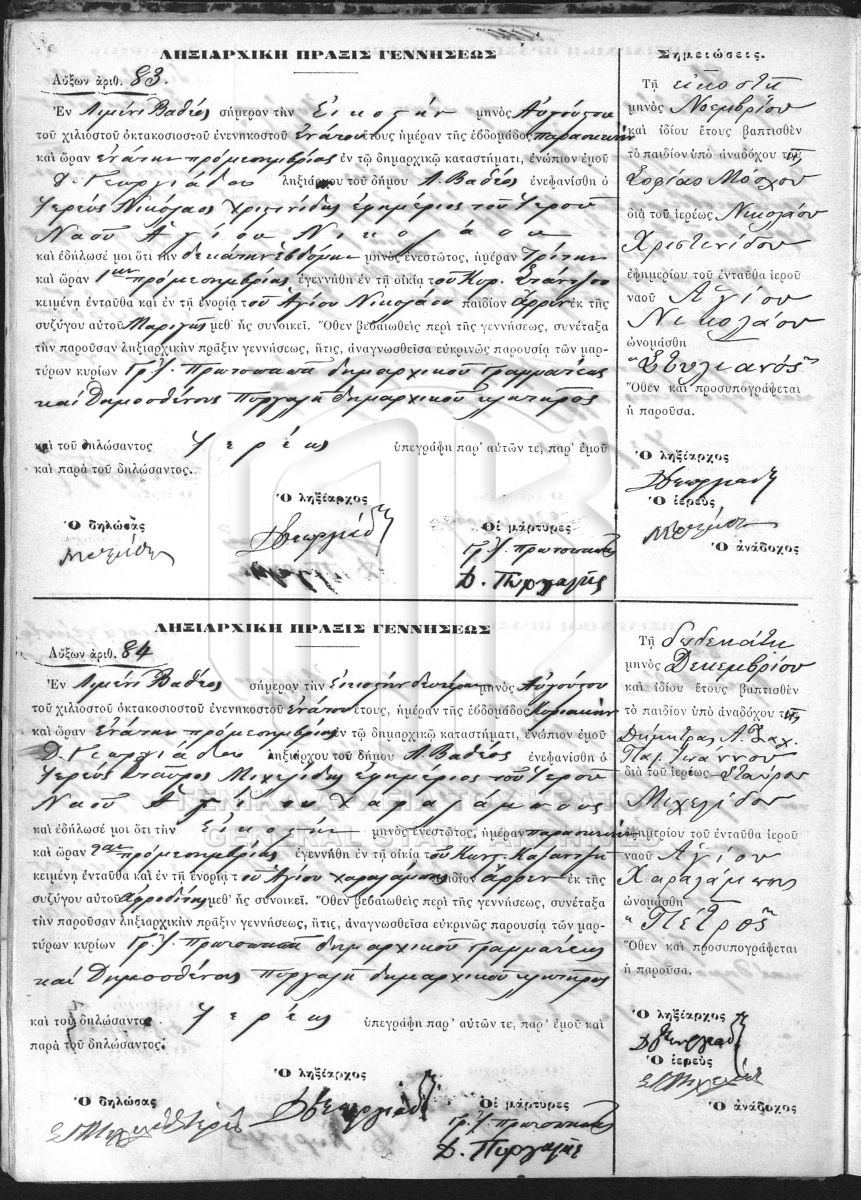 ΛΗΞΙΑΡΧΙΚΗ ΠΡΑΞΙΣ ΓΕΝΝΗΣΕΩΣ
Αὔξων ἀριθ. 83.
Ἐν Λιμένι Βαθέος σήμερον τὴν Εἰκοστὴν μηνὸς Αὐγούστου
τοῦ χιλιοστοῦ ὀκτακοσιοστοῦ ἐνενηκοστοῦ ἐνάτου ἔτους ἡμέραν τῆς ἑβδομάδος παρασκευὴν
καὶ ὥραν ἐνάτην πρὸ μεσημβρίας ἐν τῷ δημαρχικῷ καταστήματι, ἐνώπιον ἐμοῦ
Δ. Γεωργιάδου ληξιάρχου τοῦ δήμου Λ. Βαθέος ἐνεφανίσθη ὁ
Ἱερεὺς Νικόλαος Χριστινίδης ἐφημέριος τοῦ Ἱεροῦ
Ναοῦ Ἁγίου Νικολάου
καὶ ἐδήλωσέ μοι ὅτι τὴν δεκάτην ἑβδόμην μηνὸς ἐνεστῶτος, ἡμέραν Τρίτην
καὶ ὥραν 1ην πρὸ μεσημβρίας ἐγεννήθη ἐν τῇ οἰκίᾳ τοῦ Κυρ.
κειμένῃ ἐνταῦθα καὶ ἐν τῇ ἐνορίᾳ τοῦ Ἁγίου Νικολάου παιδίον ἄρρεν ἐκ τῆς
συζύγου αὐτοῦ Μαριγῆς μεθ' ἧς συνοικεῖ. Ὅθεν βεβαιωθεὶς περὶ τῆς γεννήσεως, συνέταξα
τὴν παροῦσαν ληξιαρχικὴν πρᾶξιν γεννήσεως, ἥτις, ἀναγνωσθεῖσα εὐκρινῶς παρουσίᾳ τῶν μαρ-
τύρων κυρίων Γρ. Ι. Πρωτοπαπᾶ δημαρχικοῦ Γραμματέως
καὶ Δημοσθένους Πυργαλῆ δημαρχικοῦ κλητῆρος
καὶ τοῦ δηλώσαντος Ἱερέως ὑπεγράφη παρ' αὐτῶν τε, παρ' ἐμοῦ
καὶ παρὰ τοῦ δηλώσαντος.
Ὁ ληξίαρχος
Ὁ δηλώσας
Οἱ μάρτυρες
ΔΓεωργιάδης
Γρ. Ι. Πρωτοπαπᾶς
Δ. Πυργαλῆς
Σημειώσεις.
Τῇ εἰκοστῇ
μηνὸς Νοεμβρίου
καὶ ἰδίου ἔτους βαπτισθὲν
τὸ παιδίον ὑπὸ ἀναδόχου τῆς
Σοφίας Μόσχου
διὰ τοῦ ἱερέως Νικολάου
Χριστινίδου
ἐφημερίου τοῦ ἐνταῦθα ἱεροῦ
ναοῦ Ἁγίου
Νικολάου
ὠνομάσθη
"Στυλιανός"
Ὅθεν καὶ προσυπογράφεται
ἡ παροῦσα.
Ὁ ληξίαρχος
ΔΓεωργιάδης
Ὁ ἱερεὺς
Ὁ ἀνάδοχος
ΛΗΞΙΑΡΧΙΚΗ ΠΡΑΞΙΣ ΓΕΝΝΗΣΕΩΣ
Αὔξων ἀριθ. 84
Ἐν Λιμένι Βαθέος σήμερον τὴν Εἰκοστὴν δευτέραν μηνὸς Αὐγούστου
τοῦ χιλιοστοῦ ὀκτακοσιοστοῦ ἐνενηκοστοῦ ἐνάτου ἔτους, ἡμέραν τῆς ἑβδομάδος Κυριακὴν
καὶ ὥραν ἐνάτην πρὸ μεσημβρίας ἐν τῷ δημαρχικῷ καταστήματι, ἐνώπιον ἐμοῦ
Δ. Γεωργιάδου ληξιάρχου τοῦ δήμου Λ. Βαθέος ἐνεφανίσθη ὁ
Ἱερεὺς Σταῦρος Μιχελίδης ἐφημέριος τοῦ Ἱεροῦ
Ναοῦ Ἁγίου Χαραλάμπους
καὶ ἐδήλωσέ μοι ὅτι τὴν Εἰκοστὴν μηνὸς ἐνεστῶτος, ἡμέραν παρασκευὴν
καὶ ὥραν 2αν πρὸ μεσημβρίας ἐγεννήθη ἐν τῇ οἰκίᾳ τοῦ Κωντ.
κειμένῃ ἐνταῦθα καὶ ἐν τῇ ἐνορίᾳ τοῦ Ἁγίου Χαραλάμπους παιδίον ἄρρεν ἐκ τῆς
συζύγου αὐτοῦ Ἀφροδίτης μεθ' ἧς συνοικεῖ. Ὅθεν βεβαιωθεὶς περὶ τῆς γεννήσεως, συνέταξα
τὴν παροῦσαν ληξιαρχικὴν πρᾶξιν γεννήσεως, ἥτις, ἀναγνωσθεῖσα εὐκρινῶς παρουσίᾳ τῶν μαρ-
τύρων κυρίων Γρ. Ι. Πρωτοπαπᾶ δημαρχικοῦ γραμματέως
καὶ Δημοσθένους Πυργαλῆ δημαρχικοῦ κλητῆρος
καὶ τοῦ δηλώσαντος Ἱερέως ὑπεγράφη παρ' αὐτῶν τε, παρ' ἐμοῦ καὶ
παρὰ τοῦ δηλώσαντος.
Ὁ ληξίαρχος
Ὁ δηλώσας
Οἱ μάρτυρες
ΔΓεωργιάδης
Γρ. Ι. Πρωτοπαπᾶς
Δ. Πυργαλῆς
Τῇ δωδεκάτῃ
μηνὸς Δεκεμβρίου
καὶ ἰδίου ἔτους βαπτισθὲν
τὸ παιδίον ὑπὸ ἀναδόχου τῆς
Δήμητρας Α. Ζαχ.
Παπ. Ἰωάννου
διὰ τοῦ ἱερέως Σταύρου
Μιχελίδου
ἐφημερίου τοῦ ἐνταῦθα ἱεροῦ
ναοῦ Ἁγίου
Χαραλάμπους
ὠνομάσθη
"Πέτρος"
Ὅθεν καὶ προσυπογράφεται
ἡ παροῦσα.
Ὁ ληξίαρχος
ΔΓεωργιάδης
Ὁ ἱερεὺς
Ὁ ἀνάδοχος
ΓΕΝΙΚΑ ΑΡΧΕΙΑ ΤΟΥ ΚΡΑΤΟΥΣ
GENERAL STATE ARCHIVES